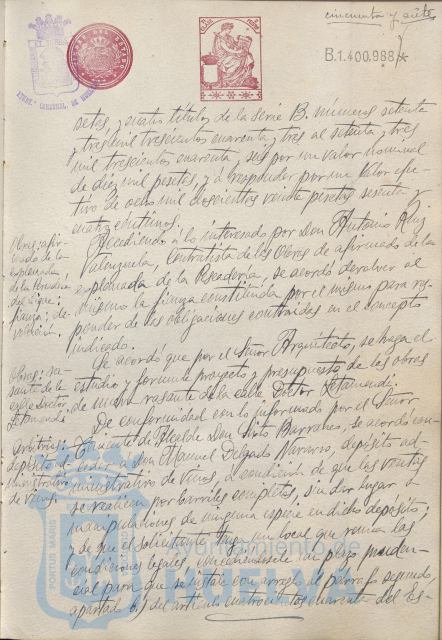 cincuenta y siete
B.1.400.988*
setas, y cuatro títulos de la serie B. números setenta
y tres mil trescientos cuarenta y tres al setenta y tres
mil trescientos cuarenta y seis por un valor nominal
de diez mil pesetas, y á responder por un valor efec-
tivo de ocho mil doscientas veinte pesetas sesenta y
cuatro céntimos.
Accediendo á lo interesado por Don Antonio Ruiz
Valenzuela, Contratista de las Obras de afirmado de la
explanada de la Pescadería, se acordó devolver al
mismo la fianza constituida por el mismo para res-
ponder de las obligaciones contraidas en el concepto
indicado.
Obras: afir-
mado de la
explanada
de la Pescadería
fianza; de-
volución.
Se acordó que por el Señor Arquitecto, se haga el
estudio y formule proyecto y presupuesto de las obras
de nueva rasante de la calle Doctor Letamendi.
Obras: ra-
sante de la
calle Doctor
Letamendi
De conformidad con lo informado por el Señor
Teniente de Alcalde Don Sixto Barranco, se acordó con-
ceder a don Manuel Delgado Navarro, depósito ad-
ministrativo de Vinos, á condición de que las ventas
se realicen por barriles completos, sin dar lugar á
manipulaciones de ninguna especie en dicho depósito;
y de que el solicitante tenga un local que reuna las
condiciones legales, concediéndosele un plazo pruden-
cial para que se instale con arreglo al párrafo segundo
apartado b) del artículo cuatrocientos cuarenta del Es-
Arbitrios:
depósito ad-
ministrativo
de Vinos.
Ayuntamiento de
HUELVA
PORTUS MARIS